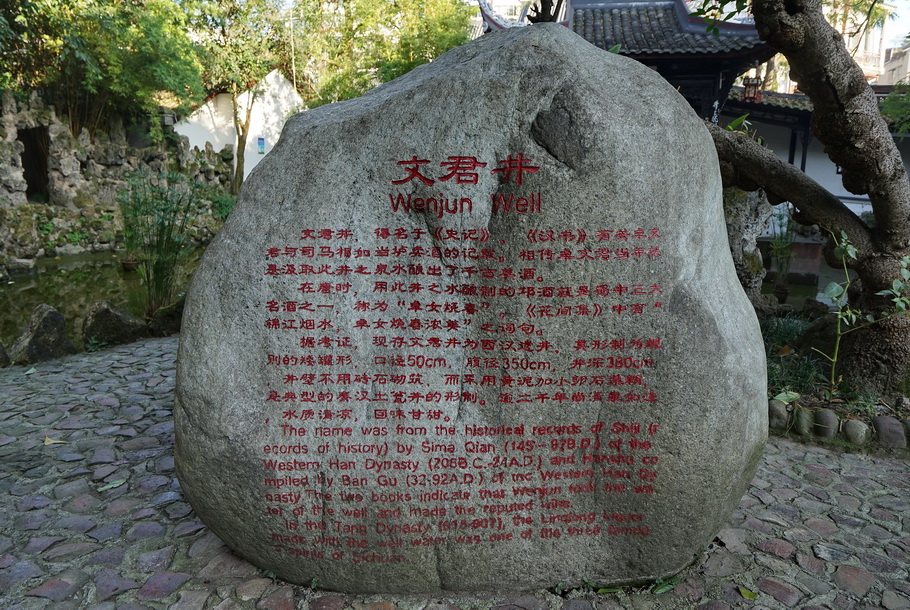 文君井
Wenjun Well
文君井，得名于《史记》、《汉书》有关卓文
君与司马相如当垆卖酒的记载。相传卓文君当年就
是汲取此井之泉水酿出了千古美酒。
在唐时，用此井之水酿制的邛酒就是蜀中三大
名酒之一，称为“卓女烧春”，《花间集》中有“
锦江烟水，卓女烧春浓美”之词句。
据考证，现存文君井为西汉遗井，其形制为特
别的矮罐形，口径50cm，腹径350cm，井深380cm，
井壁不用砖石砌筑，而采用黄泥加小卵石夯糊，
是典型的秦汉土瓮井的形制。逾二千年尚清泉如注
，水质清凉，回味甘甜。
The name was from the historical records of Shiji (r
ecords of history) by Sima Qian (145 - 87B.D.) of the
Western Han Dynasty (206B.C.-24A.D.) and Hanshu co
mpiled by Ban Gu (32-92A.D.) of the Western Han Dy
nasty.The two books indicate that Wenjun took the wa
ter of the well and made the reputed wine.
In the Tang Dynasty (618-907), the Linqiong Liquor
made with the well water was one of the three famou
s spirits of Sichuan.